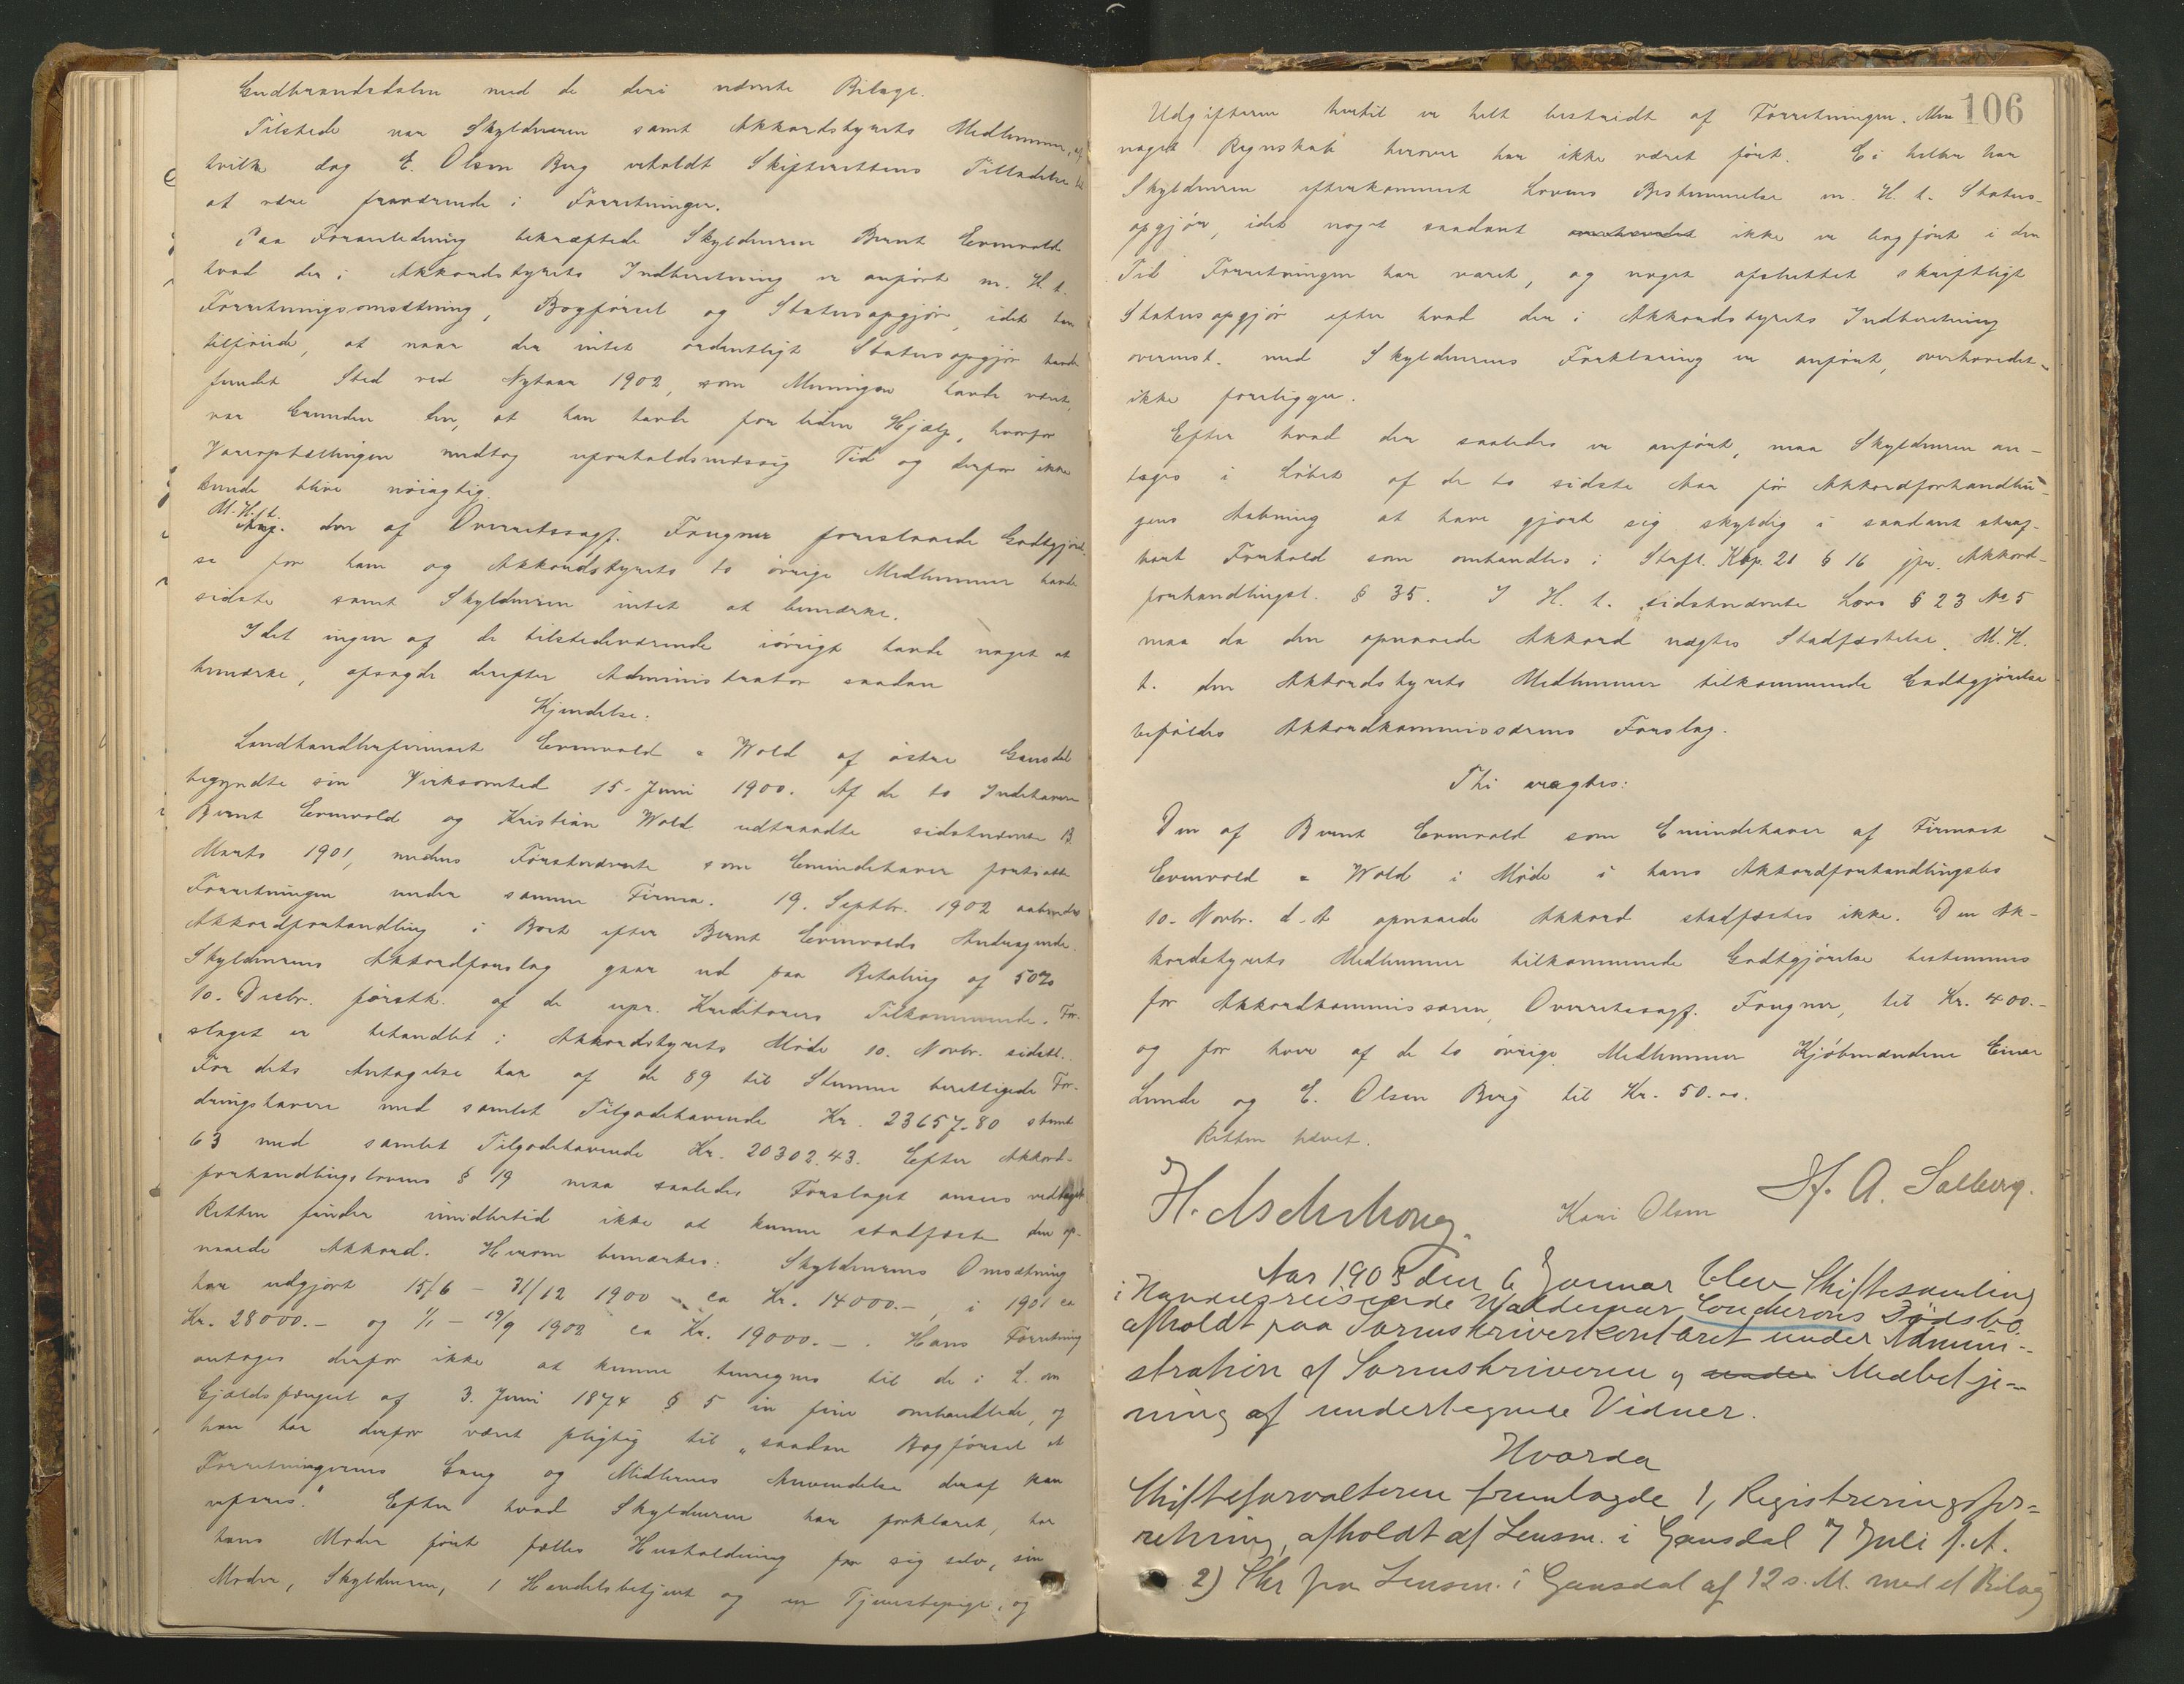 Gudbrandsdalen med de deri nævnte Bilage.
Tilstede var Skyldneren samt Akkordstyrets Medlemmer, af
hvilke dog E. Olsen Berg erholdt Skifterettens Tilladelse til
at være fraværende i Forretningen.
Paa Foranledning bekræftede Skyldneren Bernt Evenvold
hvad der i Akkordstyrets Indberetning er anført m. H. t.
Forretningsomsætning, Bogførsel og Statusopgjør, idet han
tilføiede, at naar der intet ordentligt Statusopgjør havde
fundet Sted ved Nytaar 1902, som Meningen havde været,
var Grunden den, at han havde for liden Hjælp, hvorfor
Vareoptællingen medtog uforholdsmæssig Tid og derfor ikke
kunde blive nøiagtig.
M. H. t. den af Overretssagf. Fougner foreslaaede Godtgjørel-
se for ham og Akkordstyrets to øvrige Medlemmer havde
sidste samt Skyldneren intet at bemærke.
Idet ingen af de tilstedeværende iøvrigt havde noget at
bemærke, afsagde derefter Administrator saadan
Kjendelse:
Landhandlerfirmaet Evenvold & Wold af østre Gausdal
begyndte sin Virksomhed 15. Juni 1900. Af de to Indehavere
Bernt Evenvold og Kristian Wold udtraadte sidstnævnte 13
Marts 1901, medens Førstnævnte som Eneindehaver fortsatte
Forretningen under samme Firma. 19. Septbr. 1902 aabnedes
Akkordforhandling i Boet efter Bernt Evenvolds Andragende.
Skyldnerens Akkordforslag gaar ud paa Betaling af 50%
10. Decbr. førstk. af de upr. Kreditorers Tilkommende. For-
slaget er behandlet i Akkordstyrets Møde 10. Novbr. sidstl.
For dets Antagelse har af de 89 til Stemme berettigede For-
dringshavere med samlet Tilgodehavende Kr. 23657.80 stemt
63 med samlet Tilgodehavende Kr. 20302.43. Efter Akkord-
forhandlingslovens § 19 maa saaledes Forslaget ansees vedtaget.
Retten finder imidlertid ikke at kunne stadfæste den op-
naaede Akkord. Herom bemærkes: Skyldnerens Omsætning
har udgjort 15/6 - 31/12 1900 ca Kr. 14000.-, i 1901 ca
Kr. 28000.- og 1/1 - 19/9 1902 ca Kr. 19000.-. Hans Forretning
antages derfor ikke at kunne henregnes til de i L. om
Gjældsfængsel af 3. Juni 1874 § 5 in fine omhandlede, og
han har derfor været pligtig til "saadan Bogførsel at
Forretningernes Gang og Midlernes Anvendelse deraf kan
erfares." Efter hvad Skyldneren har forklaret, har
hans Moder ført fælles Husholdning for sig selv, sin
Moder, Skyldneren, 1 Handelsbetjent og en Tjenestepige, og
106
Udgifterne hertil er helt bestridt af Forretningen. Men
noget Regnskab herover har ikke været ført. Ei heller har
Skyldneren efterkommet Lovens Bestemmelse m. H. t. Status-
opgjør, idet noget saadant ikke er bogført i den
Tid Forretningen har varet, og noget afsluttet skriftligt
Statusopgjør efter hvad der i Akkordstyrets Indberetning
overenst. med Skyldnerens Forklaring er anført, overhovedet
ikke foreligger.
Efter hvad der saaledes er anført, maa Skyldneren an-
tages i Løbet af de to sidste Aar før Akkordforhandlin-
gens Aabning at have gjort sig skyldig i saadant straf-
bart Forhold som omhandles i Strfl. Kap. 21 § 16 jfr. Akkord-
forhandlingsl. § 35. I H. t. sidstnævnte Lovs § 23 No 5
maa da den opnaaede Akkord nægtes Stadfæstelse. M. H.
t. den Akkordstyrets Medlemmer tilkommende Godtgjørelse
bifaldes Akkordkommissærens Forslag.
Thi eragtes:
Den af Bernt Evenvold som Eneindehaver af Firmaet
Evenvold & Wold i Møde i hans Akkordforhandlingsbo
10. Novbr. d. A. opnaaede Akkord stadfæstes ikke. Den Ak-
kordstyrets Medlemmer tilkommende Godtgjørelse bestemmes
for Akkordkommissæren, Overretssagf. Fougner, til Kr. 400.-
og for hver af de to øvrige Medlemmer Kjøbmændene Einar
Lunde og E. Olsen Berg til Kr. 50.00.
Retten hævet.
H. Aschehoug. Kari Olsen H. A. Salberg.
Aar 1903 den 6 Januar blev Skiftesamling
i Handelsreisende Waldemar Conderons Dødsbo
afholdt paa Sorenskriverkontoret under Admini-
stration af Sorenskriveren og under Medbetje-
ning af undertegnede Vidner.
Hvorda
Skifteforvalteren fremlagde 1, Registreringsfor-
retning, afholdt af Lensm. i Gausdal 7 Juli f. A.
2) Skr fra Lensm. i Gausdal af 12 s. M. med et Bilag